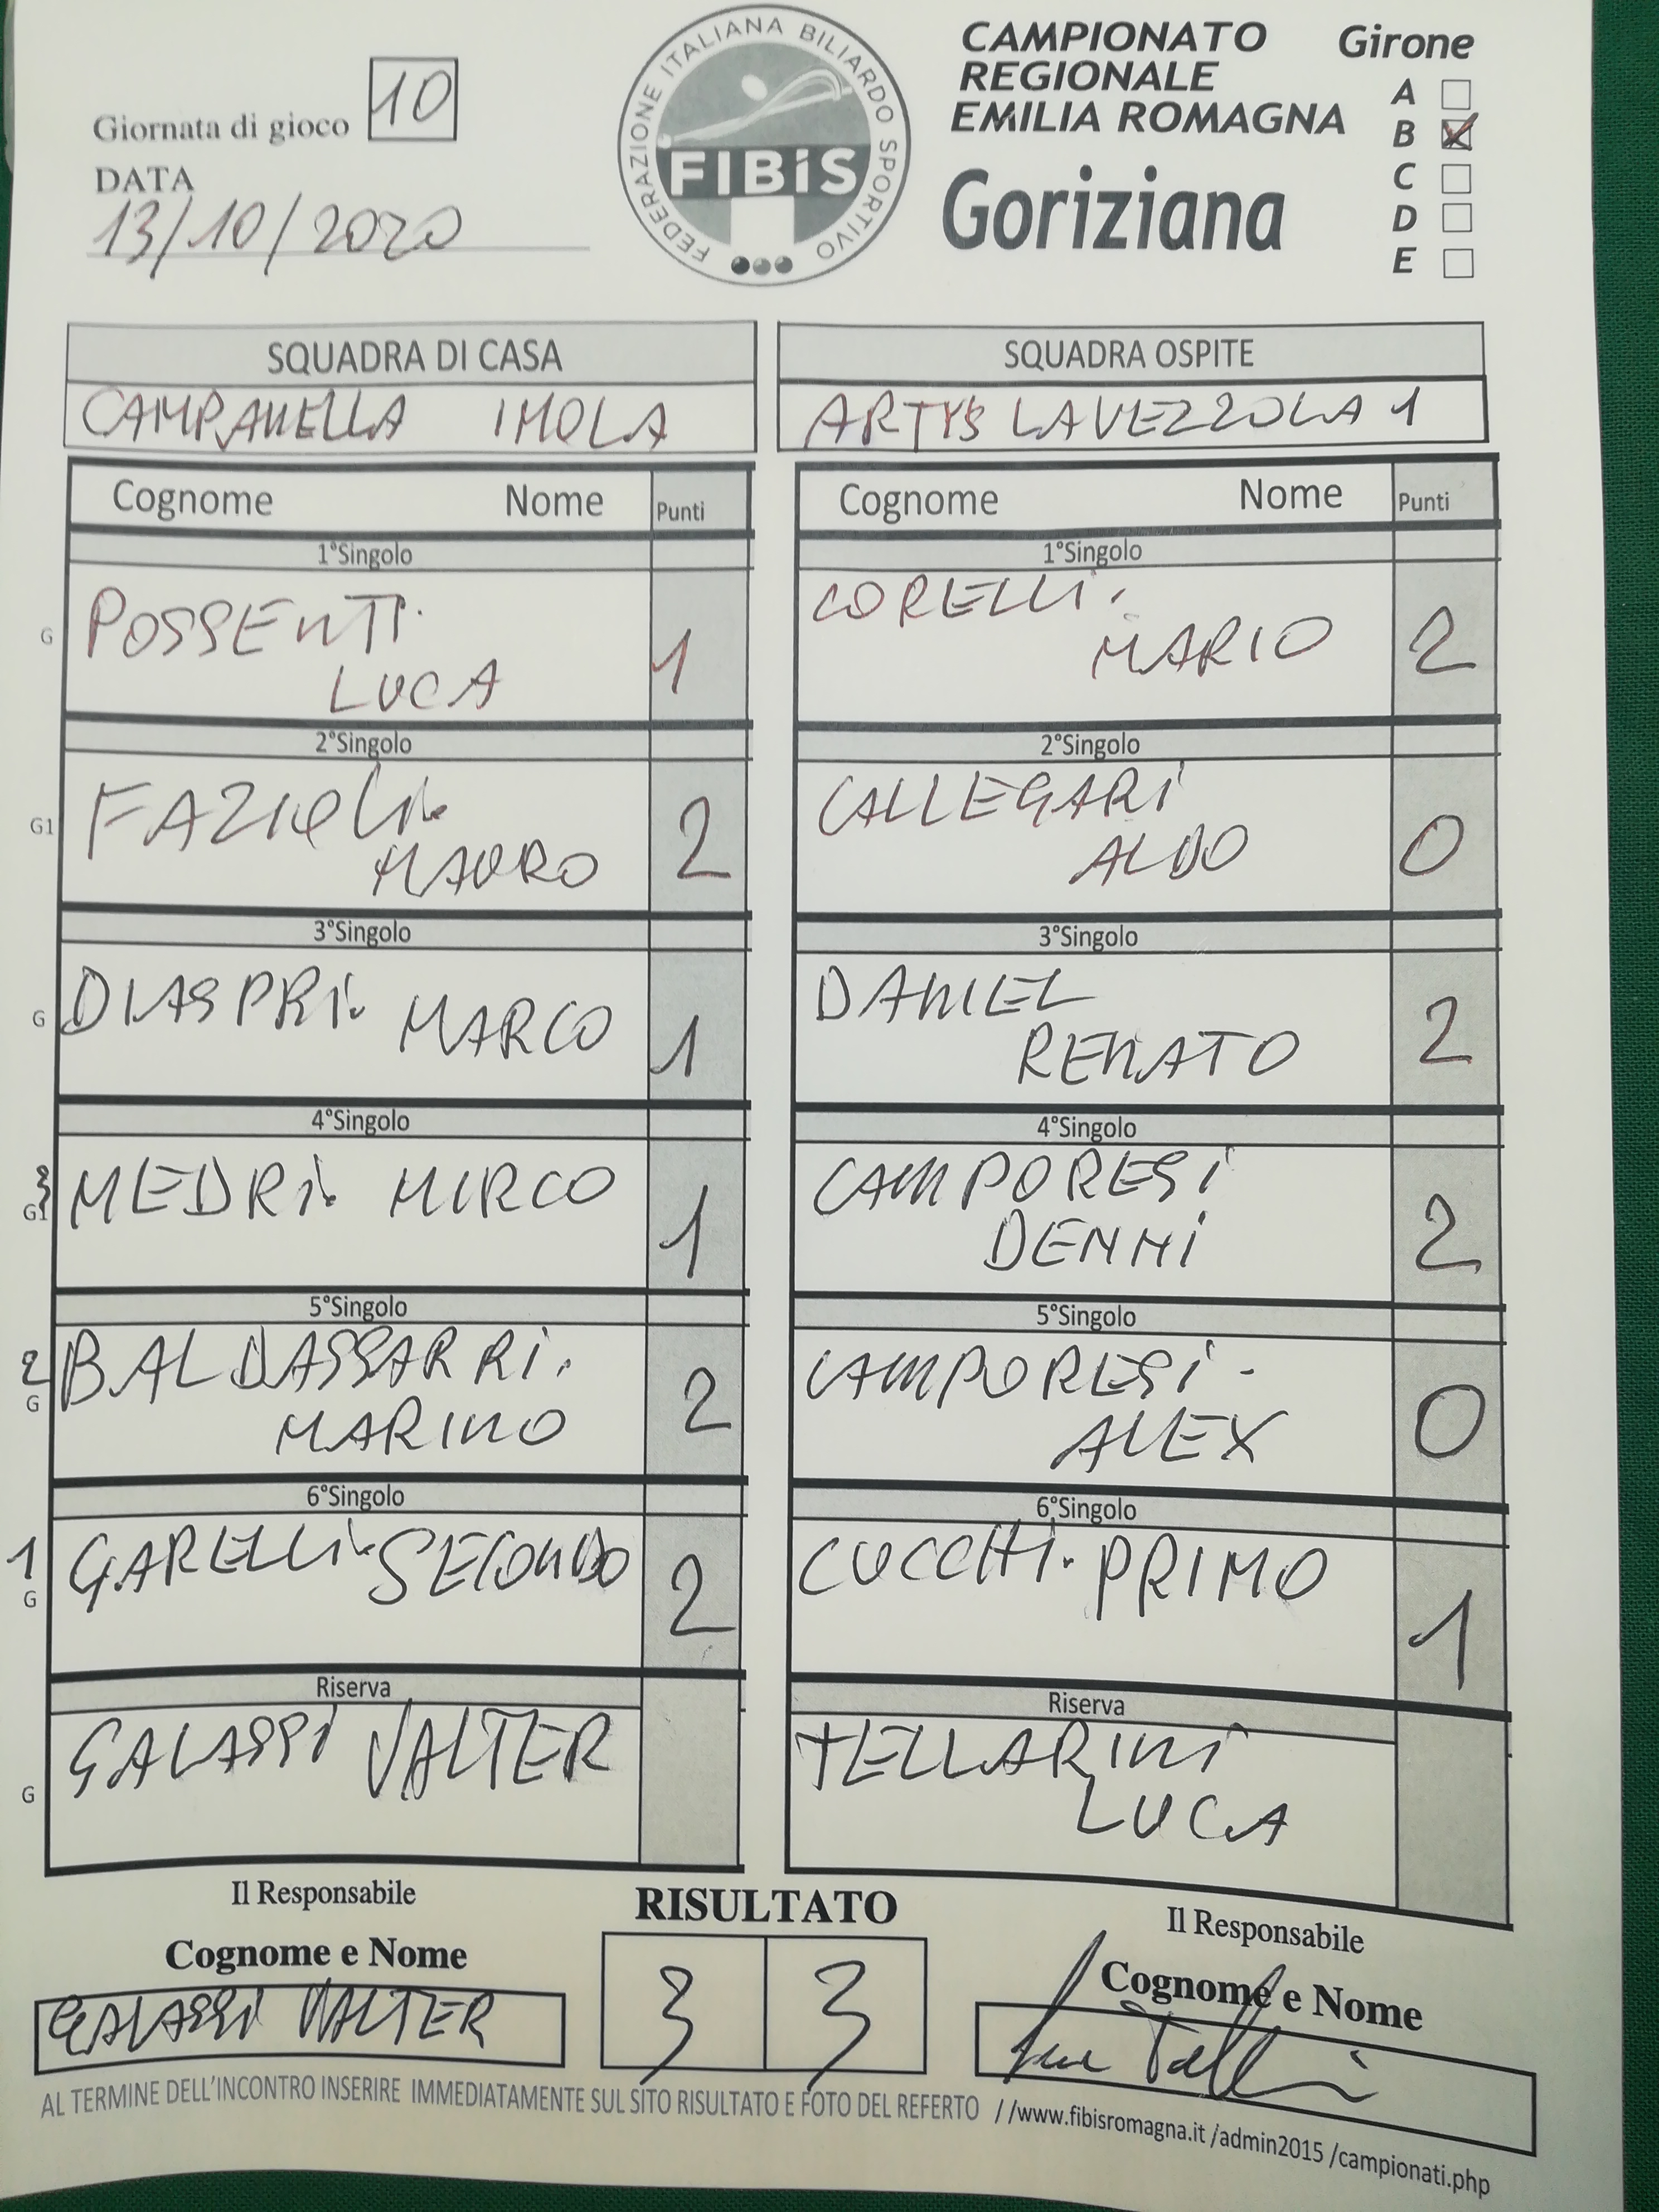 Giornata di gioco 10
DATA
13/10/2020
FEDERAZIONE ITALIANA BILIARDO SPORTIVO
FIBiS
CAMPIONATO
REGIONALE
EMILIA ROMAGNA
Goriziana
Girone
A
B X
C
D
E
SQUADRA DI CASA
CAMPANELLA IMOLA
SQUADRA OSPITE
LAVEZZOLA 1
Cognome Nome Punti
1°Singolo
G POSSENTI
LUCA 1
2°Singolo
G1 FAZIOLI
MAURO 2
3°Singolo
G DIASPRI MARCO 1
4°Singolo
3
G1 MEDRI MIRCO 1
5°Singolo
2 BALDASSARRI
G MARINO 2
6°Singolo
1 GARELLI SECONDO 2
G
Riserva
GALASSI VALTER
G
Cognome Nome Punti
1°Singolo
CORELLI
MARIO 2
2°Singolo
CALLEGARI
ALDO 0
3°Singolo
DANIEL
RENATO 2
4°Singolo
CAMPORESI
DENNI 2
5°Singolo
CAMPORESI -
ALEX 0
6°Singolo
CUCCHI PRIMO 1
Riserva
TELLARINI
LUCA
Il Responsabile
Cognome e Nome
GALASSI VALTER
RISULTATO
3 3
Il Responsabile
Cognome e Nome
AL TERMINE DELL'INCONTRO INSERIRE IMMEDIATAMENTE SUL SITO RISULTATO E FOTO DEL REFERTO //www.fibisromagna.it /admin2015 /campionati.php